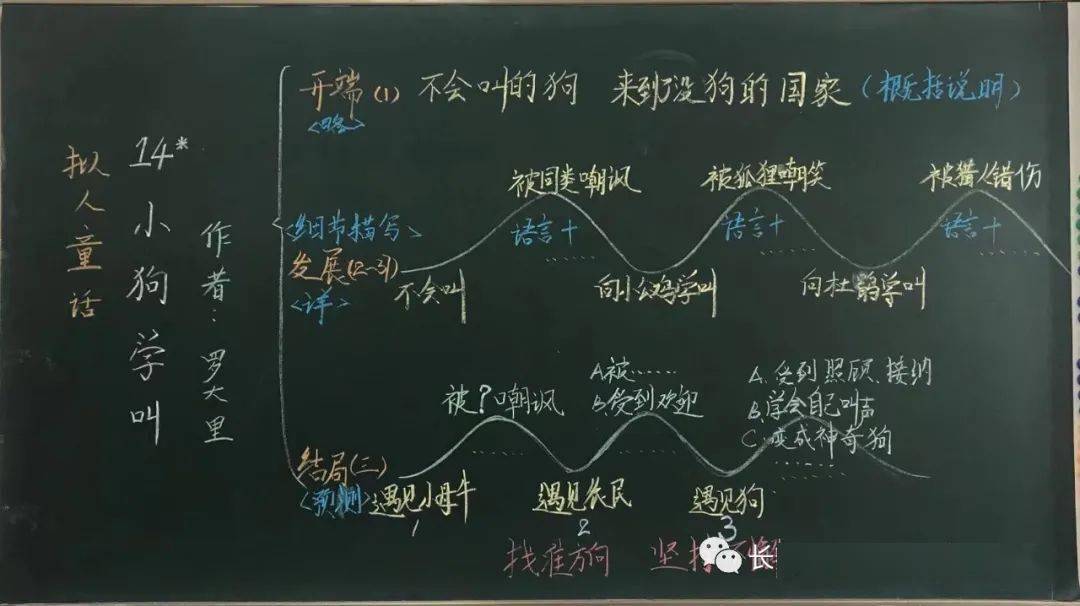 拟人童话
14*小狗学叫
作者：罗大里
开端(1) 不会叫的狗 来到了没狗的国家（概括说明）
<略>
被同类嘲讽 被狐狸嘲笑 被猎人错伤
<细节描写> 语言+ 语言+ 语言+
…… …… ……
发展(2~3)
<详> 不会叫 向小公鸡学叫 向杜鹃学叫
被?嘲讽 A.被…… A.受到照顾、接纳
B.受到欢迎 B.学会自己叫声
C.变成神奇狗
…… …… ……
结局(三)
<预测> 遇见小母牛 遇见农民 遇见狗
1 2 3
找准方向 坚持
长